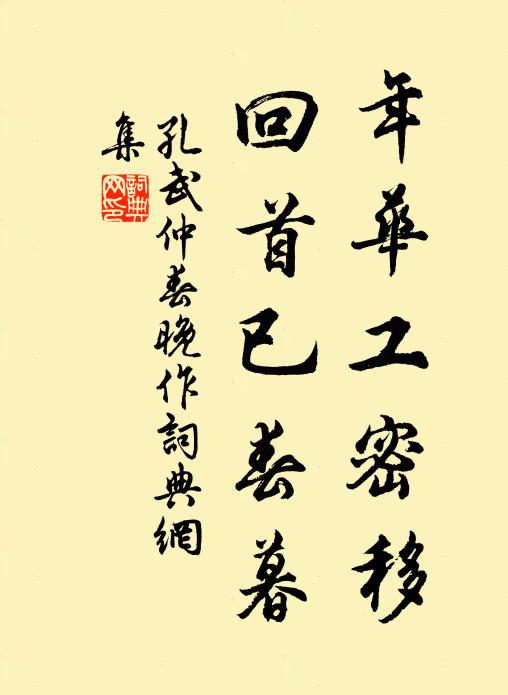 年華工密移
回首已春暮
孔武仲春晚作詞典網
集
詞典
网印